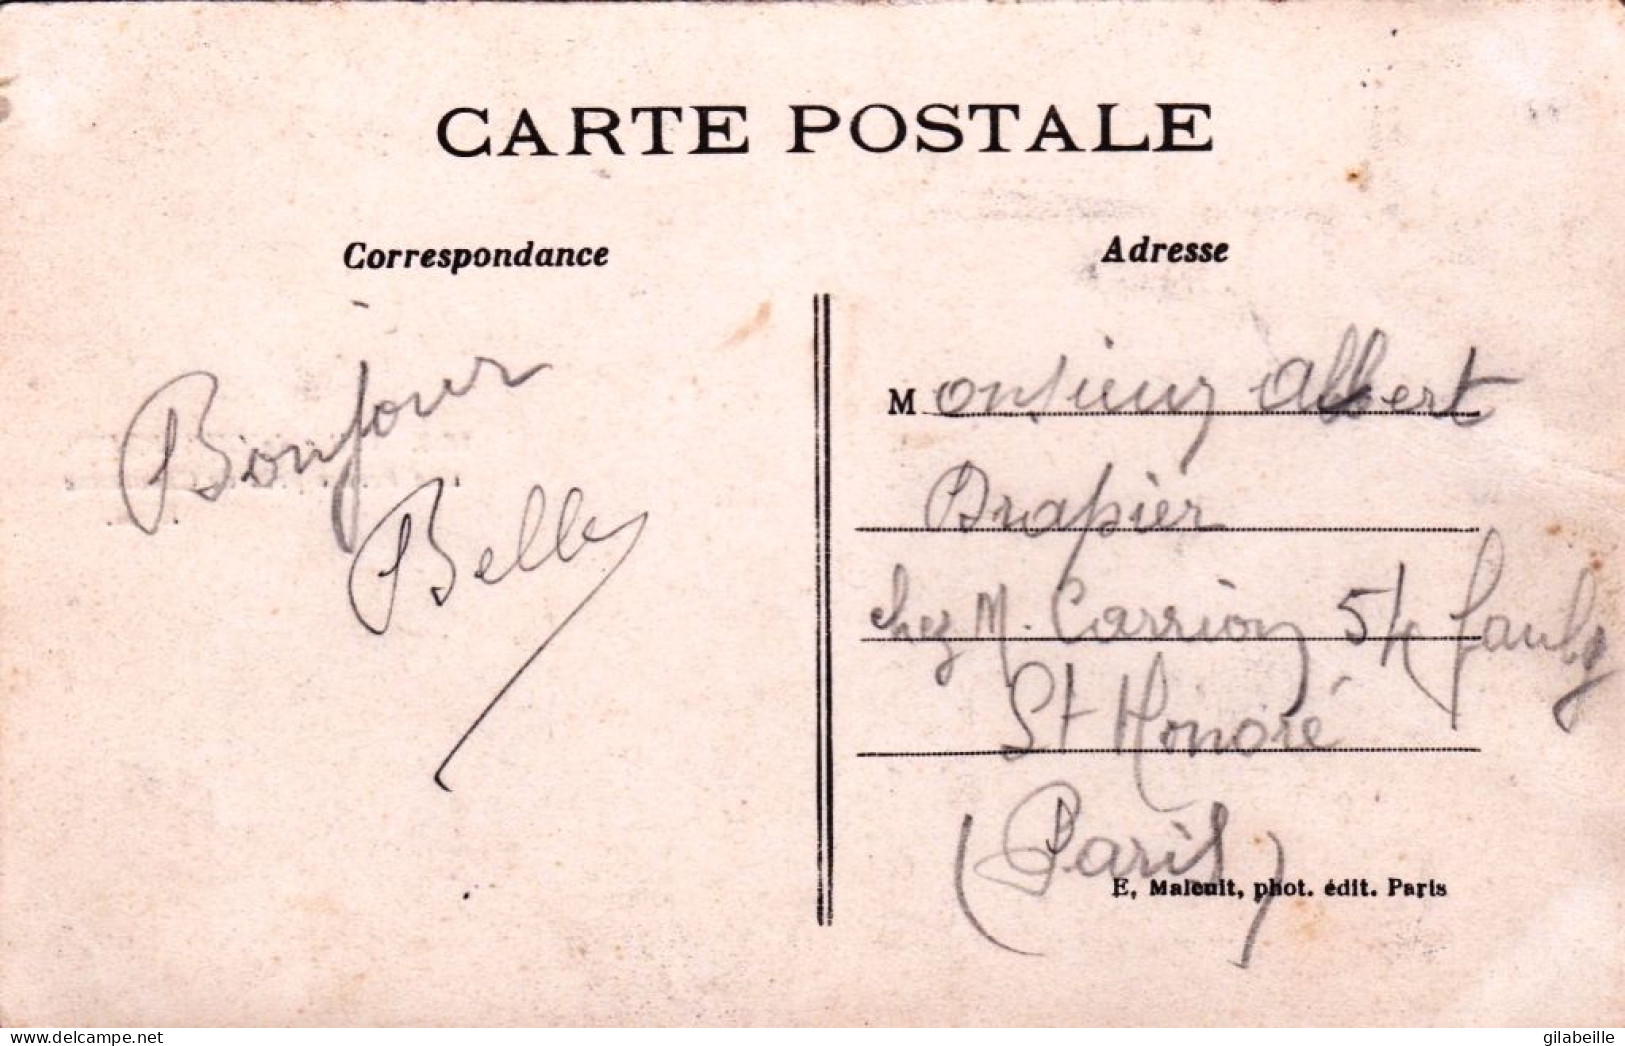 CARTE POSTALE
Correspondance
Bonjour
Belley
Adresse
Monsieur Albert
Drapier
chez M. Carrion 54 faubg
St Honoré
(Paris)
E. Malcuit, phot. édit. Paris
delcampe.net
gilabeille